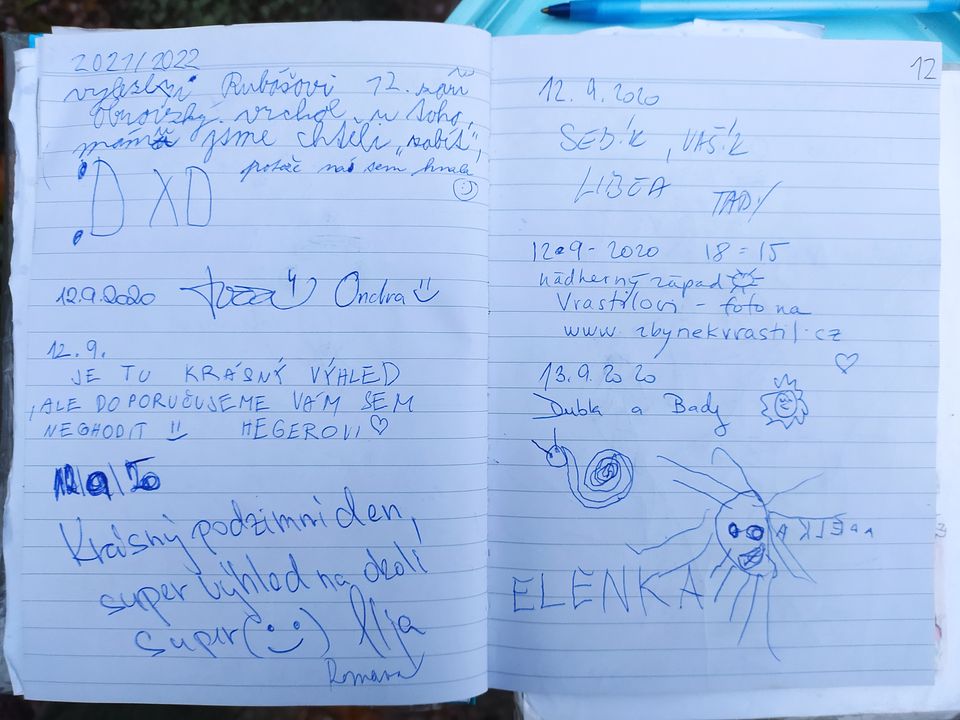 2021/2022
vylezli Rubášovi 12. září
obrovský vrchol u toho,
jsme chtěli „zabít“,
protože nás sem hnala
:D XD
12.9.2020 Ondra
12.9.
JE TU KRÁSNÝ VÝHLED
, ALE DOPORUČUJEME VÁM SEM
NECHODIT HEGEROVI ♡
12/9/20
Krásný podzimní den,
super výhled na okolí
super (:-) Ilja
Romana
12
12.9.2020
SEBÍK, VAŠÍK
LIBĚA TADY
12.9-2020 18=15
nádherný západ
Vrastilovi - foto na
www.zbynekvrastil.cz
♡
13.9.2020
Dubla a Bady
ELENKA